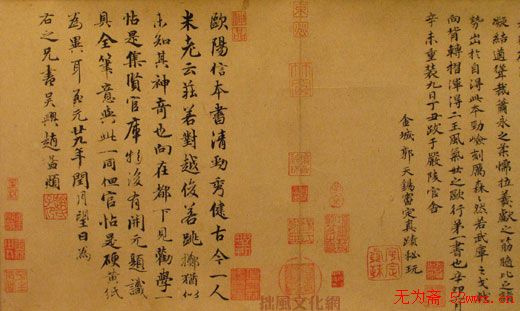 凝結遒聳裁蕭永之柔懦拉羲獻之筋髓比之諸
勢出於自得此本勁嶮刻厲森森然若武庫之戈戟
向背轉摺渾得二王風氣世之歐行第一書也辛卯
辛未重裝九日丁丑跋於嚴陵官舍
金城郭天錫審定真蹟秘玩
歐陽信本書清勁秀健古今一人
米老云莊若對越俊若跳擲猶似
未知其神奇也向在都下見勸學一
帖是集賢官庫物後有開元題識
具全筆意與此一同但官帖是硬黃紙
為異耳至元廿九年閏月望日為
右之兄書吳興趙孟頫
拙風文化網
无为斋